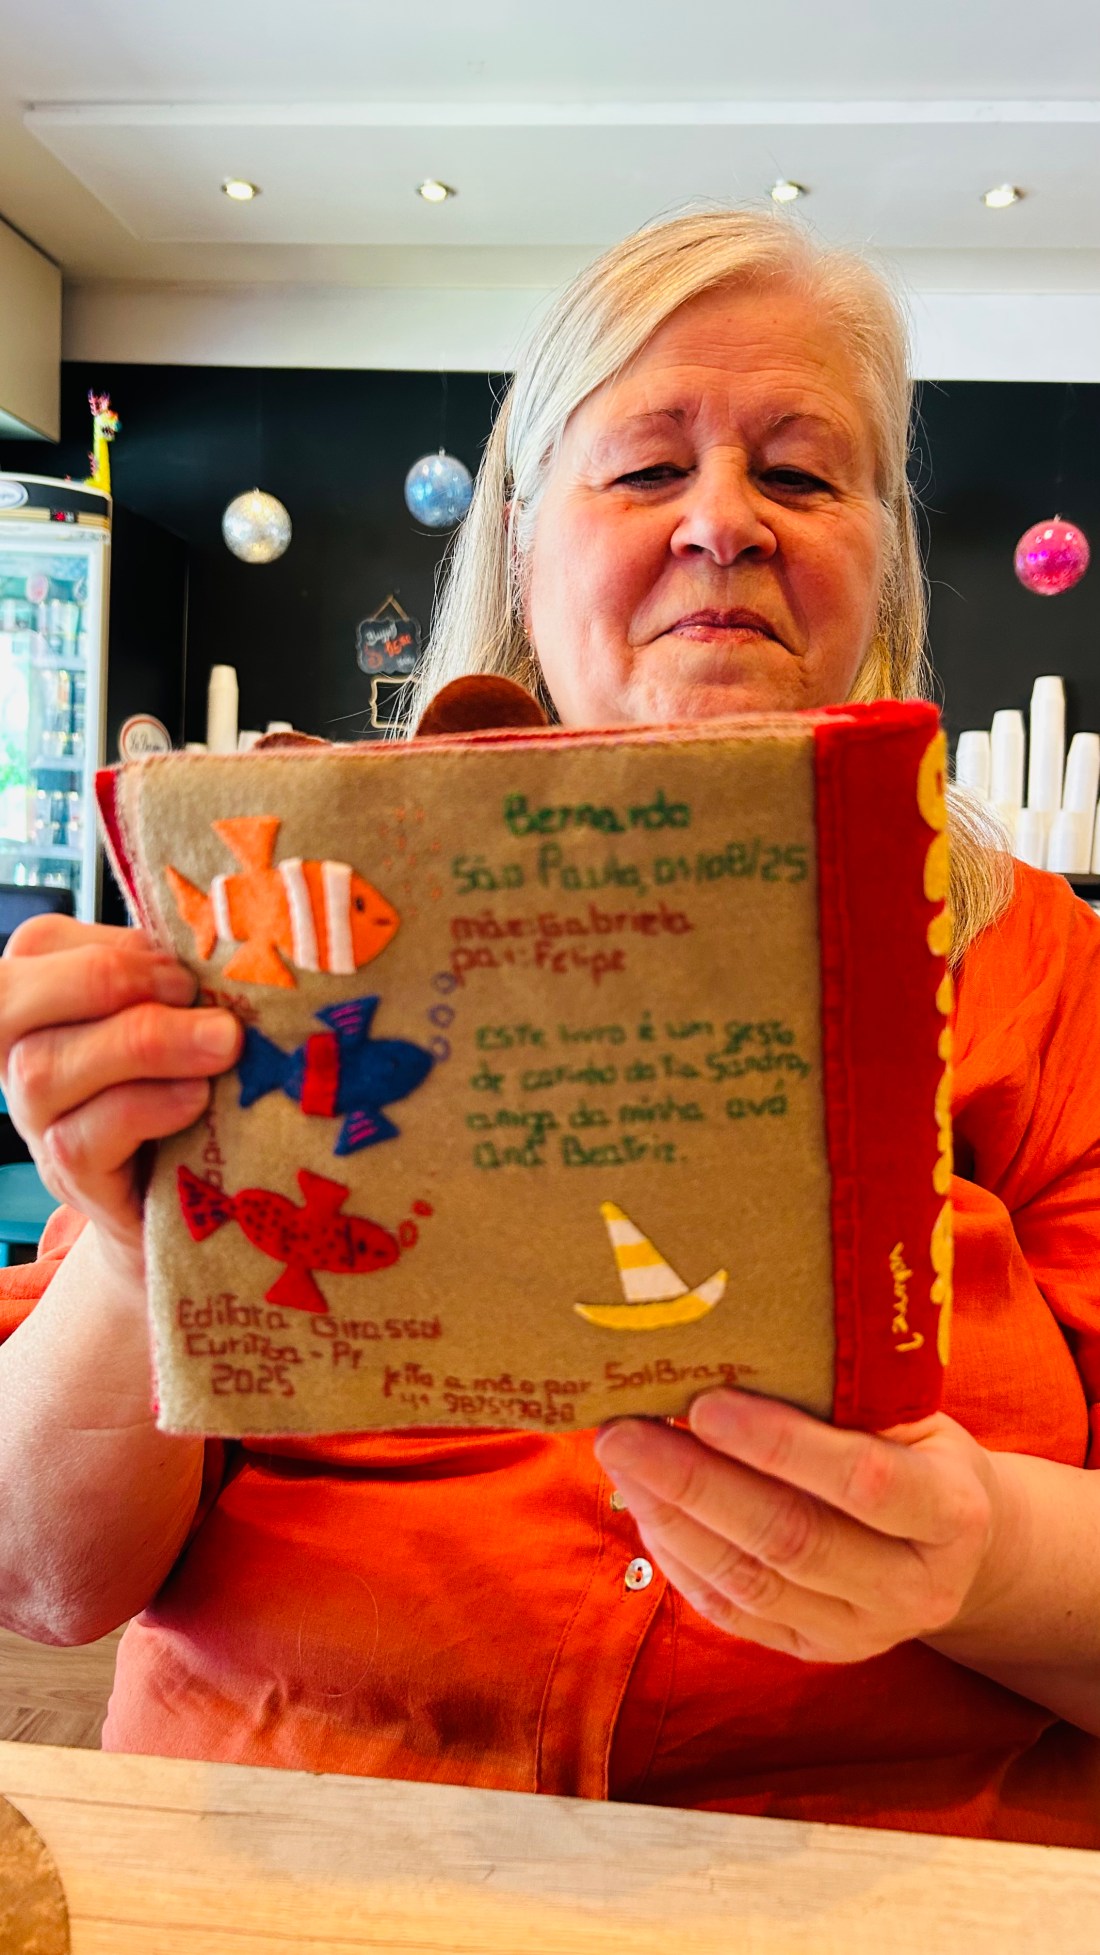 Bernardo
São Paulo, 01/08/25
mãe: Gabriela
pai: Felipe
Este livro é um gesto
de carinho da Tia Sandra,
amiga da minha avó
Ana Beatriz.
Editora Girassol
Curitiba - Pr
2025
feito a mão por Sol Braga
41
volume 1
Buffet